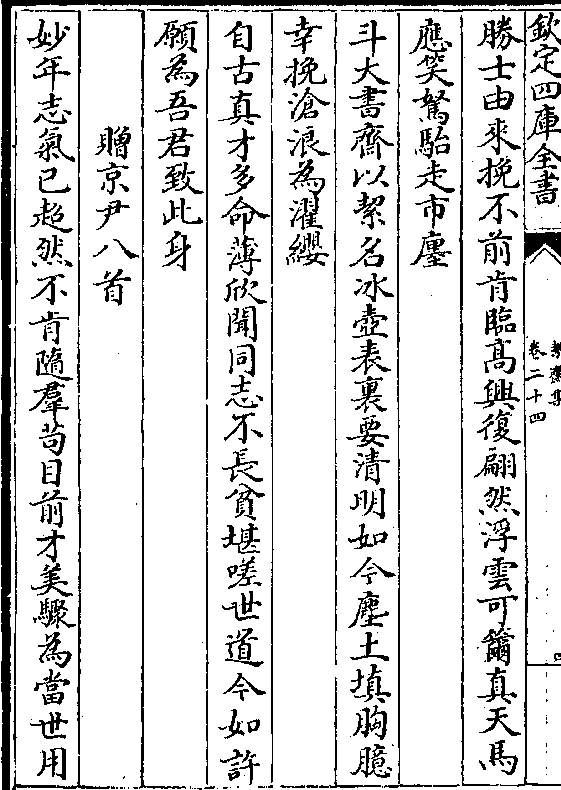 欽定四庫全書
卷二十四
勝士由來挽不前肯臨髙興復翩然浮雲可籋真天馬
應笑駑駘走市廛
斗大書齋以絜名冰壺表裏要清明如今塵土填胸臆
幸挽滄浪為濯纓
自古真才多命薄欣聞同志不長貧堪嗟世道今如許
願為吾君致此身
贈京尹八首
妙年志氣已超然不肯隨羣苟目前才美驟為當世用